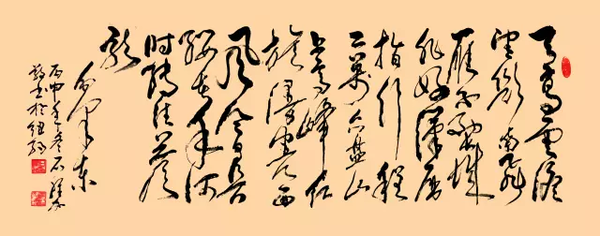 天高雲淡
望断南飛
雁不到长城
非好漢屈
指行程
二萬六盘山
上高峰红
旗漫卷西
风今日长
缨在手何
时缚住苍
龙
毛泽东
丙申年